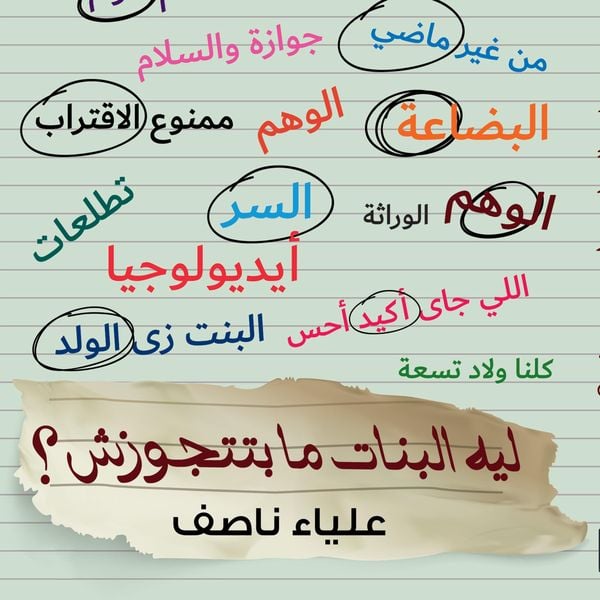 من غير ماضي
جوازة والسلام
البضاعة
الوهم
ممنوع الاقتراب
الوهم
الوراثة
السر
تطلعات
أيديولوجيا
اللي جاى أكيد أحس
البنت زى الولد
كلنا ولاد تسعة
ليه البنات ما بتتجوزش؟
علياء ناصف